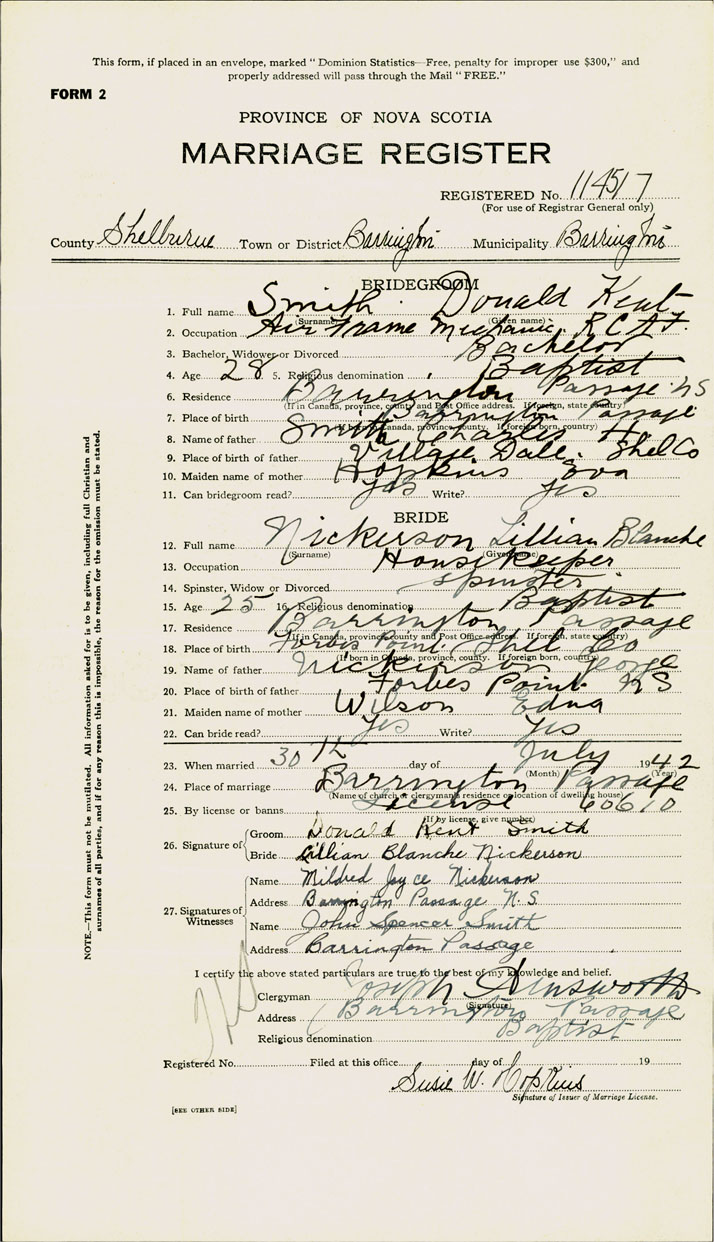 This form, if placed in an envelope, marked "Dominion Statistics—Free, penalty for improper use $300," and
properly addressed will pass through the Mail "FREE."
FORM 2
PROVINCE OF NOVA SCOTIA
MARRIAGE REGISTER
REGISTERED No. 114517
(For use of Registrar General only)
County Shelburne Town or District Barrington Municipality Barrington
BRIDEGROOM
1. Full name Smith Donald Kent
(Surname) (Given name)
2. Occupation Air Frame Mechanic. R.C.A.F.
3. Bachelor, Widower or Divorced Bachelor
4. Age 28 5. Religious denomination Baptist
6. Residence Barrington Passage NS
(If in Canada, province, county and Post Office address. If foreign, state country)
7. Place of birth Barrington Passage
(If born in Canada, province, county. If foreign born, country)
8. Name of father Smith Charles H.
9. Place of birth of father Village Dale. Shel Co
10. Maiden name of mother Hopkins Eva
11. Can bridegroom read? Yes Write? Yes
BRIDE
12. Full name Nickerson Lillian Blanche
(Surname) (Given name)
13. Occupation Housekeeper
14. Spinster, Widow or Divorced Spinster
15. Age 25 16. Religious denomination Baptist
17. Residence Barrington Passage
(If in Canada, province, county and Post Office address. If foreign, state country)
18. Place of birth Forbes Point Shel Co
(If born in Canada, province, county. If foreign born, country)
19. Name of father Nickerson George
20. Place of birth of father Forbes Point NS
21. Maiden name of mother Wilson Edna
22. Can bride read? Yes Write? Yes
23. When married 30th day of July 1942
(Month) (Year)
24. Place of marriage Barrington Passage
(Name of church or clergyman's residence or location of dwelling house)
25. By license or banns License 60610
(If by license, give number)
26. Signature of
Groom Donald Kent Smith
Bride Lillian Blanche Nickerson
27. Signatures of Witnesses
Name Mildred Joyce Nickerson
Address Barrington Passage N.S.
Name John Spencer Smith
Address Barrington Passage
I certify the above stated particulars are true to the best of my knowledge and belief.
Clergyman Joseph Ainsworth
(Signature)
Address Barrington Passage
Religious denomination Baptist
Registered No. Filed at this office day of 19
Susie W. Hopkins
Signature of Issuer of Marriage License.
[SEE OTHER SIDE]
NOTE.—This form must not be mutilated. All information asked for is to be given, including full Christian and
surnames of all parties, and if for any reason this is impossible, the reason for the omission must be stated.